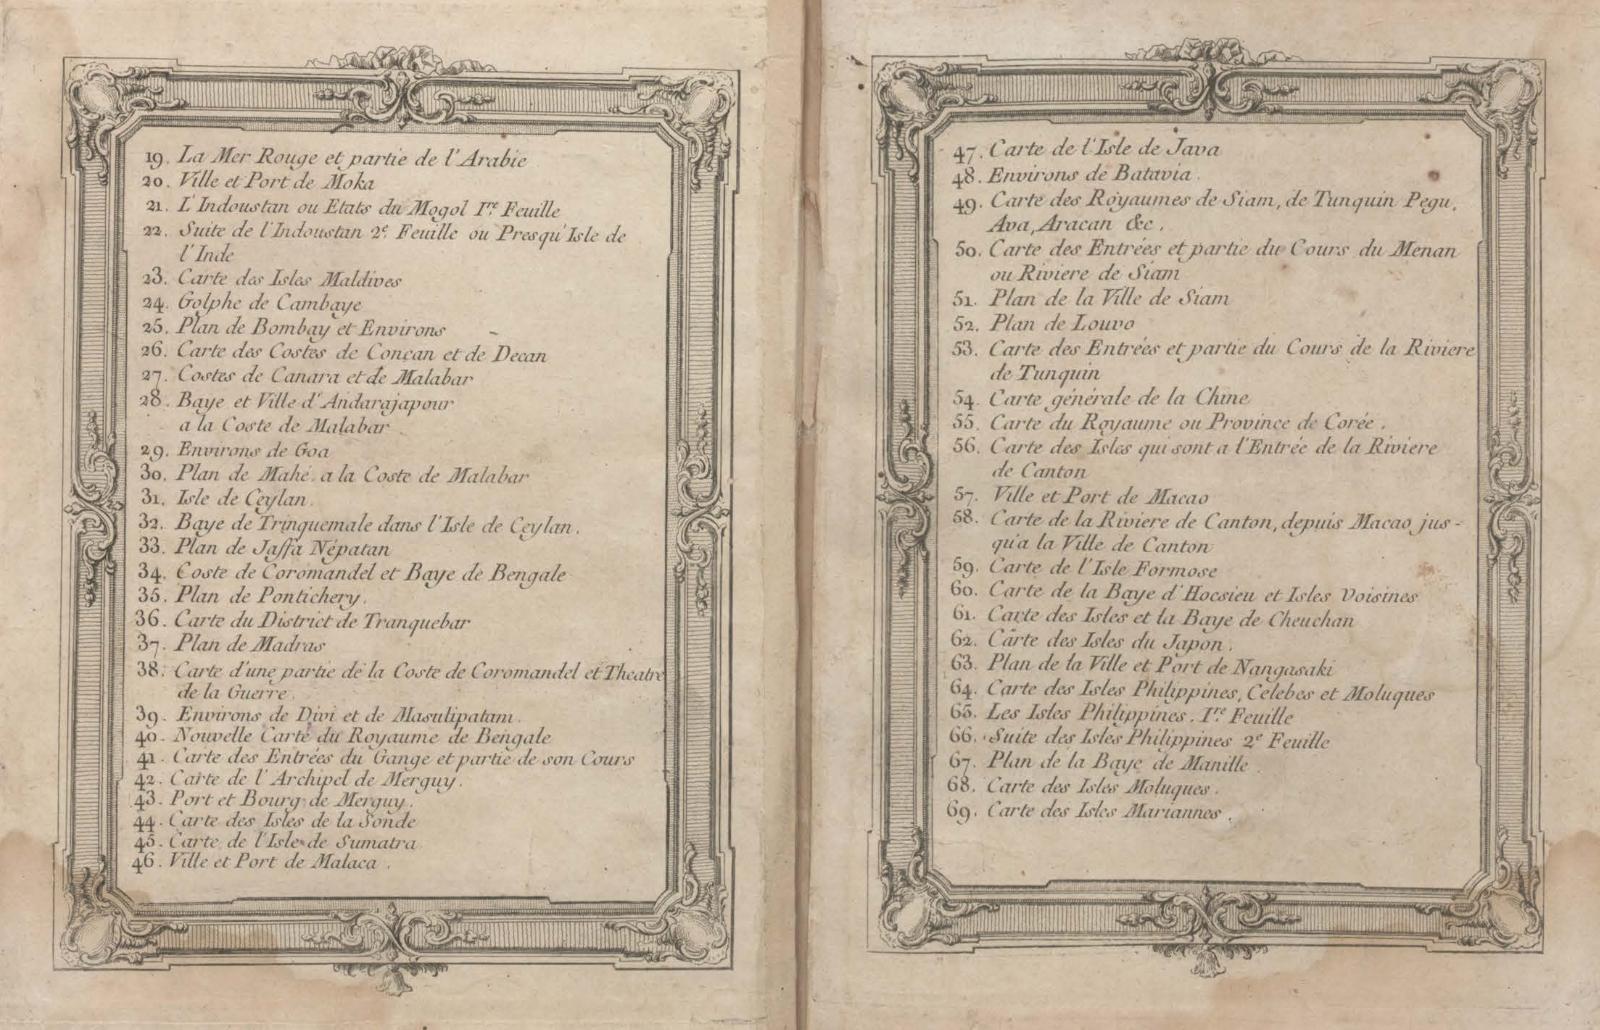 19. La Mer Rouge et partie de l'Arabie
20. Ville et Port de Moka
21. L'Indoustan ou Etats du Mogol Iʳᵉ Feuille
22. Suite de l'Indoustan 2ᵉ Feuille ou Presqu'Isle de
l'Inde
23. Carte des Isles Maldives
24. Golphe de Cambaye
25. Plan de Bombay et Environs
26. Carte des Costes de Concan et de Decan
27. Costes de Canara et de Malabar
28. Baye et Ville d'Andarajapour
a la Coste de Malabar
29. Environs de Goa
30. Plan de Mahé a la Coste de Malabar
31. Isle de Ceylan
32. Baye de Trinquemale dans l'Isle de Ceylan.
33. Plan de Jaffa Népatan
34. Coste de Coromandel et Baye de Bengale
35. Plan de Pontichery.
36. Carte du District de Tranquebar
37. Plan de Madras
38. Carte d'une partie de la Coste de Coromandel et Theatre
de la Guerre.
39. Environs de Divi et de Masulipatam.
40. Nouvelle Carte du Royaume de Bengale
41. Carte des Entrées du Gange et partie de son Cours
42. Carte de l'Archipel de Merguy.
43. Port et Bourg de Merguy.
44. Carte des Isles de la Sonde
45. Carte de l'Isle de Sumatra
46. Ville et Port de Malaca.
47. Carte de l'Isle de Java
48. Environs de Batavia.
49. Carte des Royaumes de Siam, de Tunquin Pegu,
Ava, Aracan &c.
50. Carte des Entrées et partie du Cours du Menan
ou Riviere de Siam
51. Plan de la Ville de Siam
52. Plan de Louvo
53. Carte des Entrées et partie du Cours de la Riviere
de Tunquin
54. Carte générale de la Chine
55. Carte du Royaume ou Province de Corée.
56. Carte des Isles qui sont a l'Entrée de la Riviere
de Canton
57. Ville et Port de Macao
58. Carte de la Riviere de Canton, depuis Macao jus-
qu'a la Ville de Canton
59. Carte de l'Isle Formose
60. Carte de la Baye d'Hocsieu et Isles Voisines
61. Carte des Isles et la Baye de Cheuchan
62. Carte des Isles du Japon.
63. Plan de la Ville et Port de Nangasaki
64. Carte des Isles Philippines, Celebes et Moluques
65. Les Isles Philippines. Iʳᵉ Feuille
66. Suite des Isles Philippines 2ᵉ Feuille
67. Plan de la Baye de Manille
68. Carte des Isles Moluques.
69. Carte des Isles Mariannes.